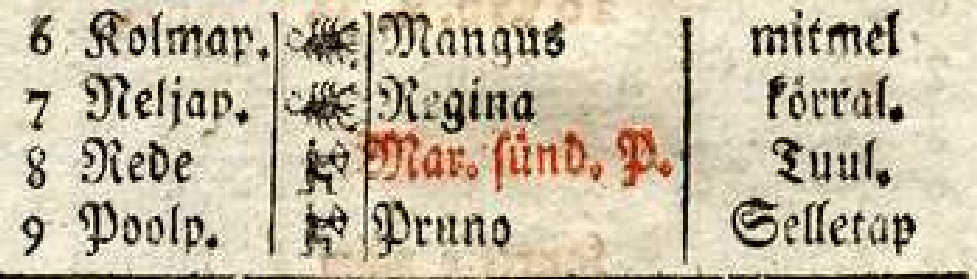 6 Kolmap. Mangus mitmel
7 Neljap. Regina körral.
8 Rede Mar. sünd. P. Tuul.
9 Poolp. Pruno Selletap